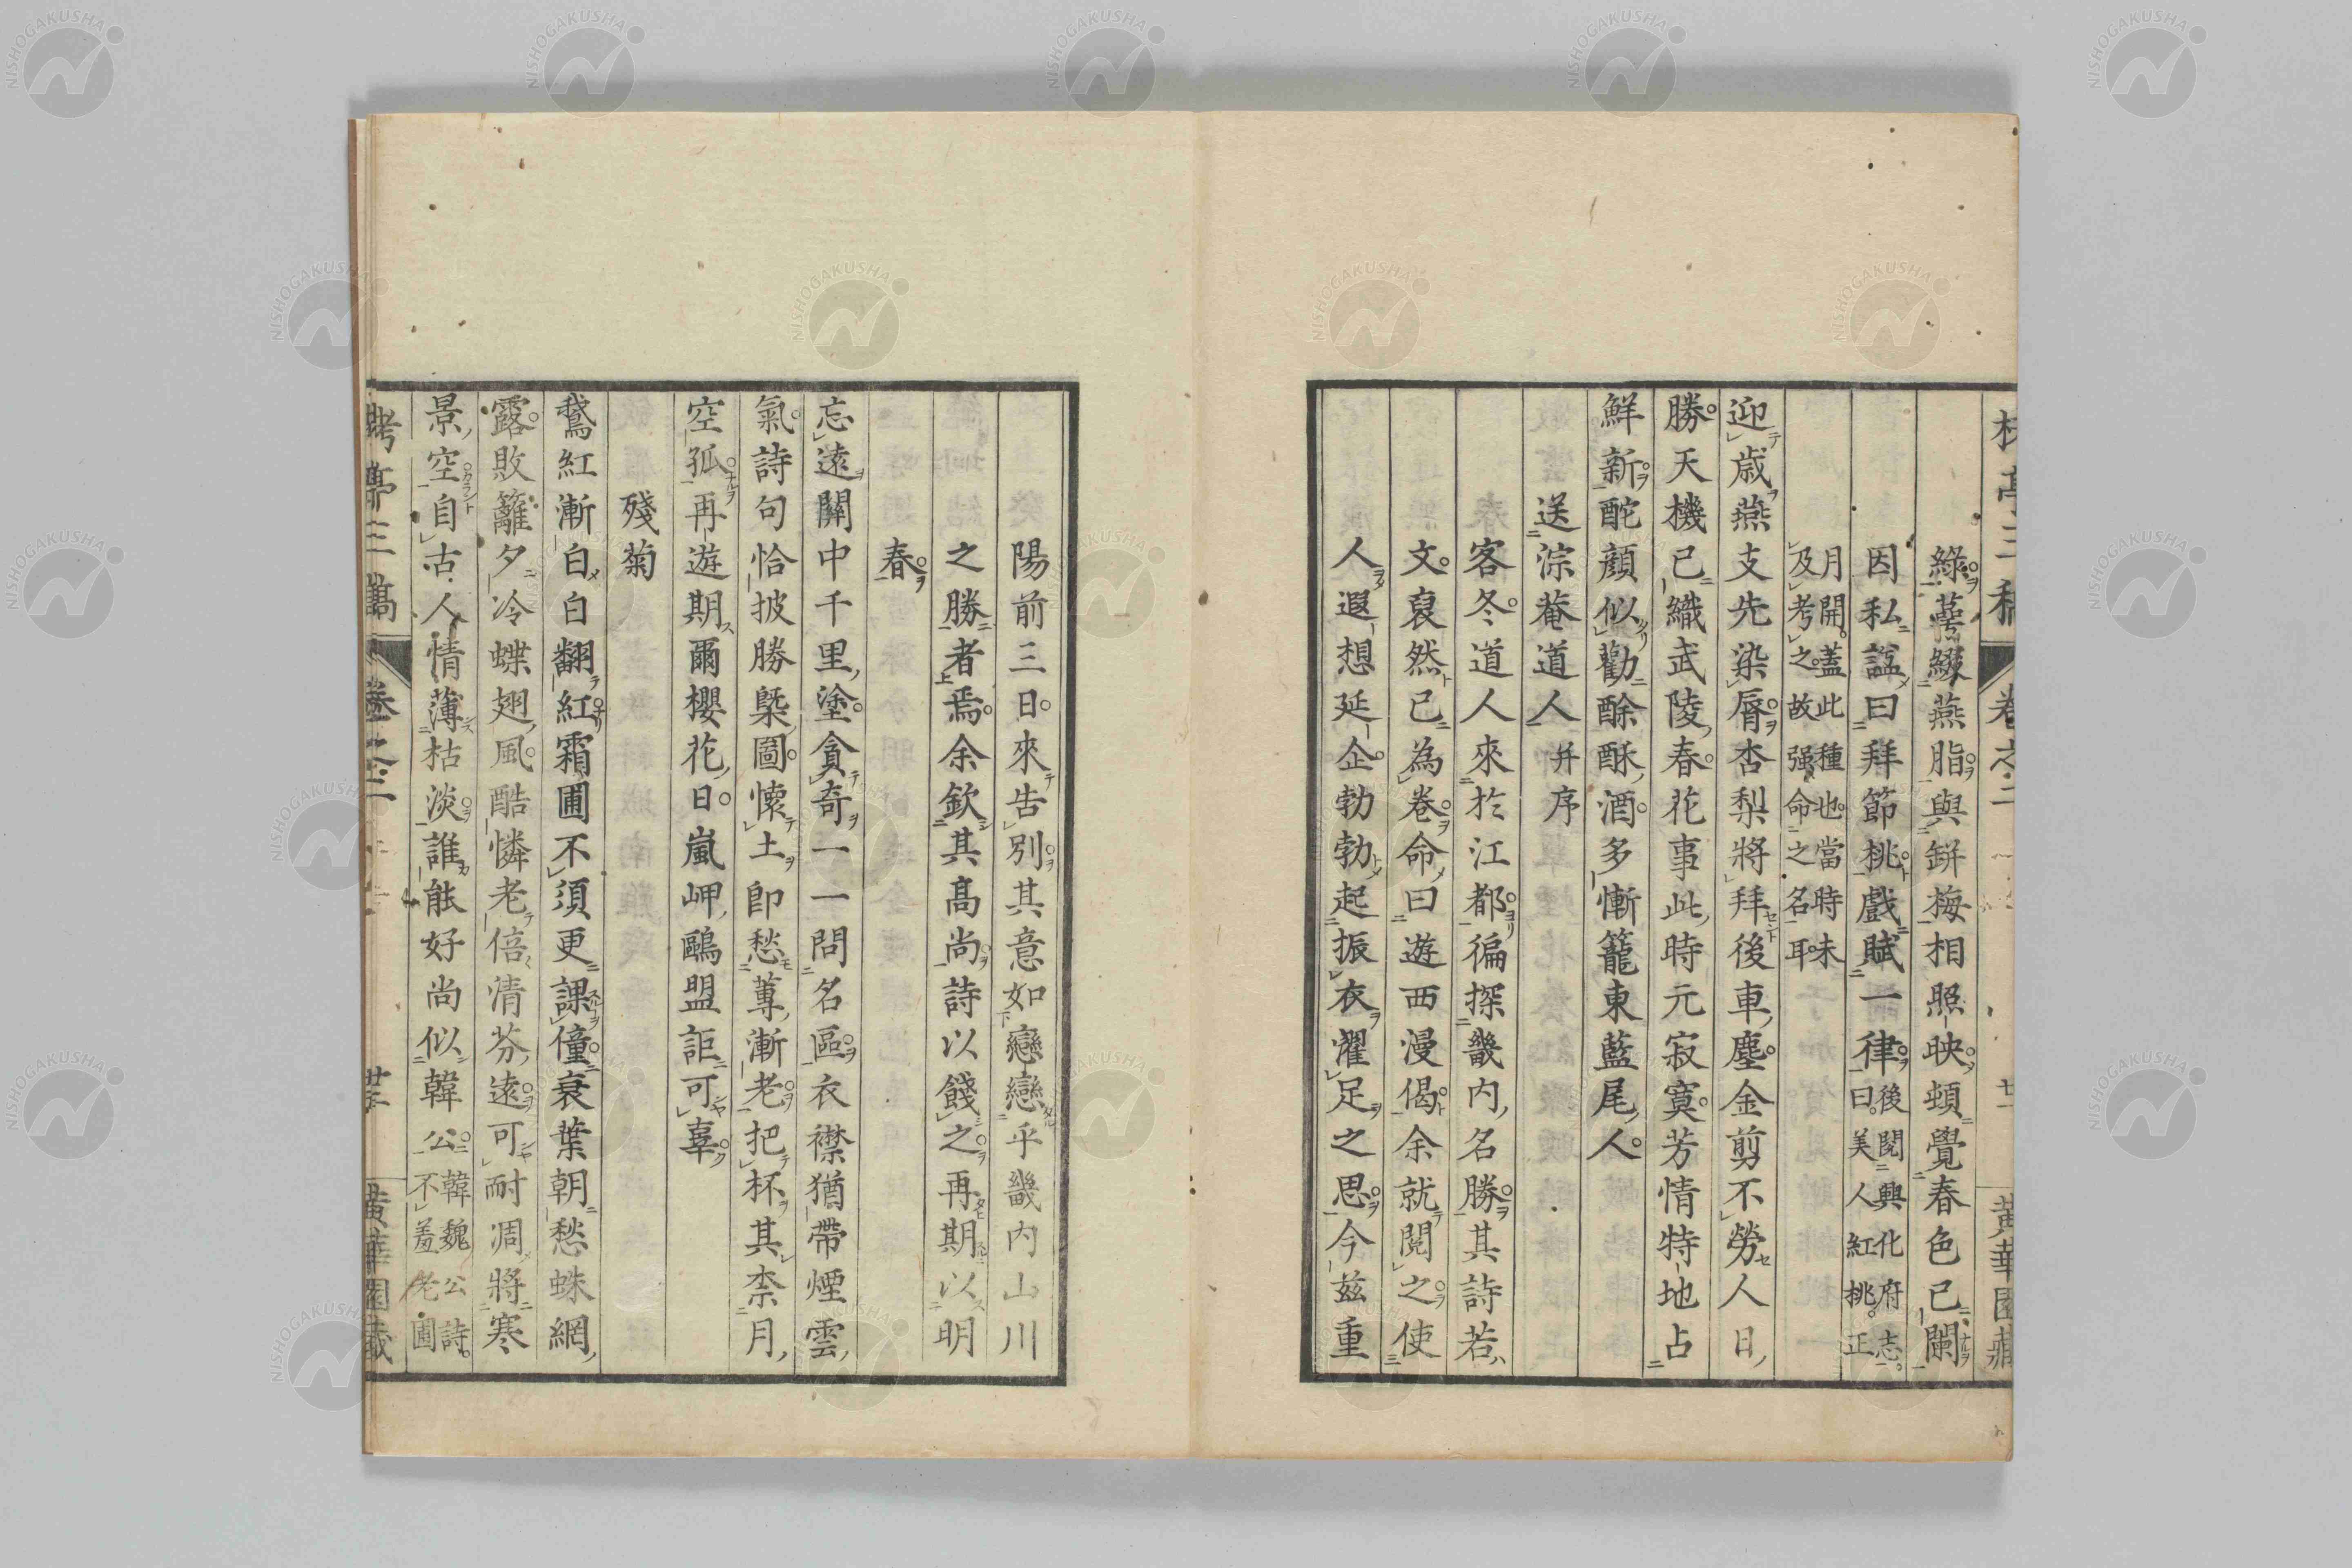 綠蕚綴燕脂與缾梅相照映頓覺春色已闌
因私諡曰拜節桃戲賦一律後閱興化府志
曰美人紅桃正
月開蓋此種也當時未
及考之故强命之名耳
迎歳燕支先染脣杏梨將拜後車塵金剪不勞人日
勝天機已織武陵春花事此時元寂寞芳情特地占
鮮新酡顔似勸酴酥酒多慚籠東藍尾人
送淙菴道人并序
客冬道人來於江都徧探畿内名勝其詩若
文裒然已為卷命曰遊西漫偈余就閱之使
人遐想延企勃勃起振衣濯足之思今茲重
陽前三日來告別其意如戀戀乎畿内山川
之勝者焉余欽其高尚詩以餞之再期以明
春
忘遠關中千里塗貪奇一一問名區衣襟猶帶煙雲
氣詩句恰披勝槩圖懷土即愁蓴漸老把杯其柰月
空孤再遊期爾櫻花日嵐岬鷗盟詎可辜
殘菊
鵞紅漸白白翻紅霜圃不須更課僮衰葉朝愁蛛網
露敗籬夕冷蝶翅風酷憐老倍清芬遠可耐凋將寒
景空自古人情薄枯淡誰能好尚似韓公韓魏公詩
不羞老圃
卷之二
廿一
黃華園藏